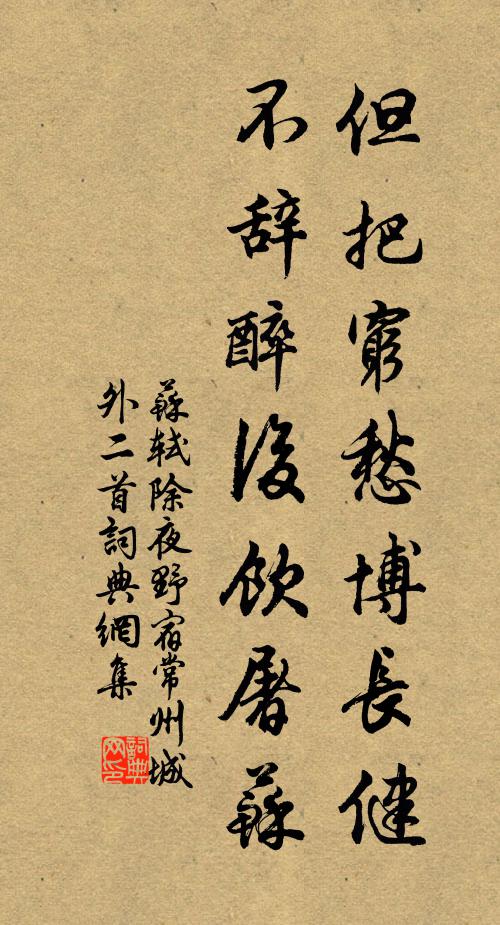 但把窮愁博長健
不辭醉後飲屠蘇
蘇軾除夜野宿常州城
外二首詞典網集
詞典网印